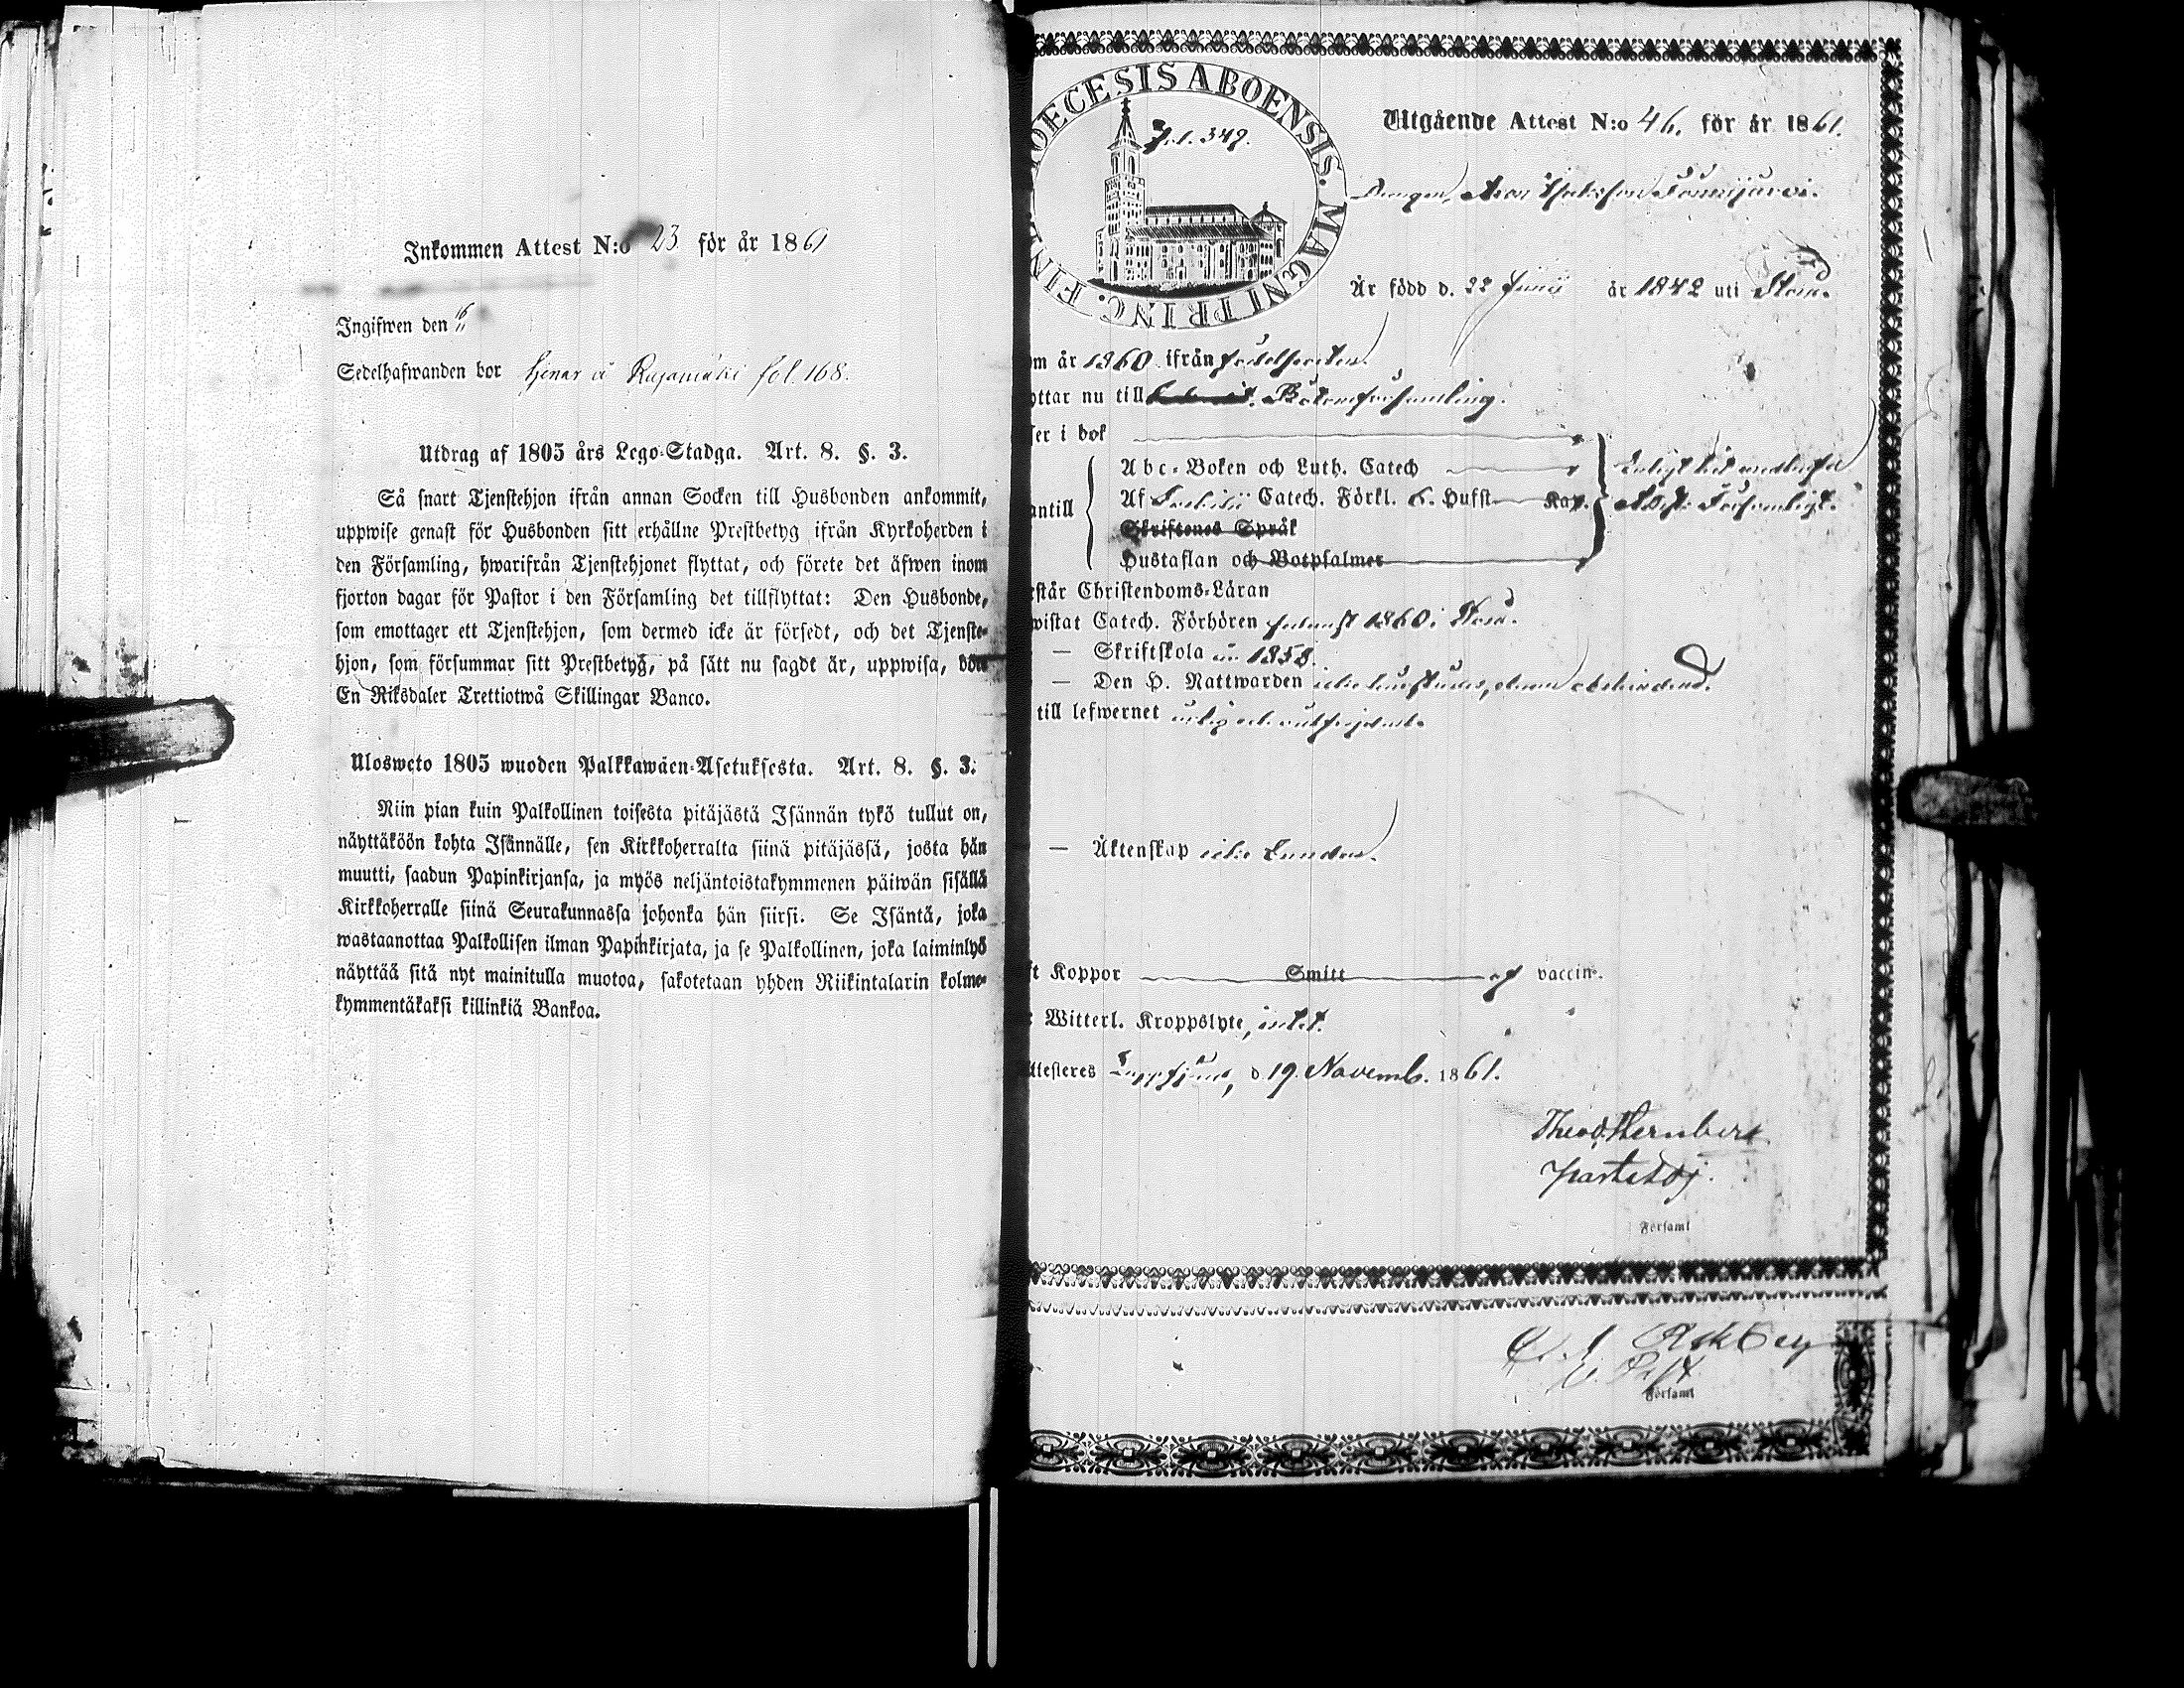 Inkommen Attest N:o 23. för år 1861
Ingifwen den
Sedelhafwanden bor å Rajamäki fol. 168.
Utdrag af 1805 års Lego-Stadga. Art. 8. §. 3.
Så snart Tjenstehjon ifrån annan Socken till Husbonden ankommit,
uppwise genast för Husbonden sitt erhållne Prestbetyg ifrån Kyrkoherden i
den Församling, hwarifrån Tjenstehjonet flyttat, och förete det äfwen inom
fjorton dagar för Pastor i den Församling det tillflyttat: Den Husbonde,
som emottager ett Tjenstehjon, som dermed icke är försedt, och det Tjenste-
hjon, som försummar sitt Prestbetyg, på sätt nu sagdt är, uppwisa, böte
En Riksdaler Trettiotwå Skillingar Banco.
Ulosweto 1805 wuoden Palkkawäen-Asetuksesta. Art. 8. §. 3.
Niin pian kuin Palkollinen toisesta pitäjästä Isännän tykö tullut on,
näyttäköön kohta Isännälle, sen Kirkkoherralta siinä pitäjässä, josta hän
muutti, saadun Papinkirjansa, ja myös neljäntoistakymmenen päiwän sisällä
Kirkkoherralle siinä Seurakunnassa johonka hän siirsi. Se Isäntä, joka
wastaanottaa Palkollisen ilman Papinkirjata, ja se Palkollinen, joka laiminlyö
näyttää sitä nyt mainitulla muotoa, sakotetaan yhden Riikintalarin kolme-
kymmentäkaksi killinkiä Bankoa.
DECESIS ABOENSIS. MAGNI PRINC. FIN
Fol. 349.
Utgående Attest N:o 46. för år 1861.
Drengen
Är född d. 22 Junii år 1842 uti
om år 1860 ifrån födelseorten
ottar nu till Bötom församling.
ser i bok
Abc-Boken och Luth. Catech
Af Catech. Förkl. 6. Hufst. Kap.
antill
Skriftenes Språk
Hustaflan och Botpsalmer
rstår Christendoms-Läran
wistat Catech. Förhören senast 1860 i
— Skriftskola år 1858.
— Den H. Nattwarden icke
till lefwernet ärlig och
— Äktenskap icke bunden.
ft Koppor Smitt af vaccin.
Witterl. Kroppslyte, intet.
Attesteres Lappfjerd, d. 19. Novemb. 1861.
Theod.
Församl
v. Past.
Församl